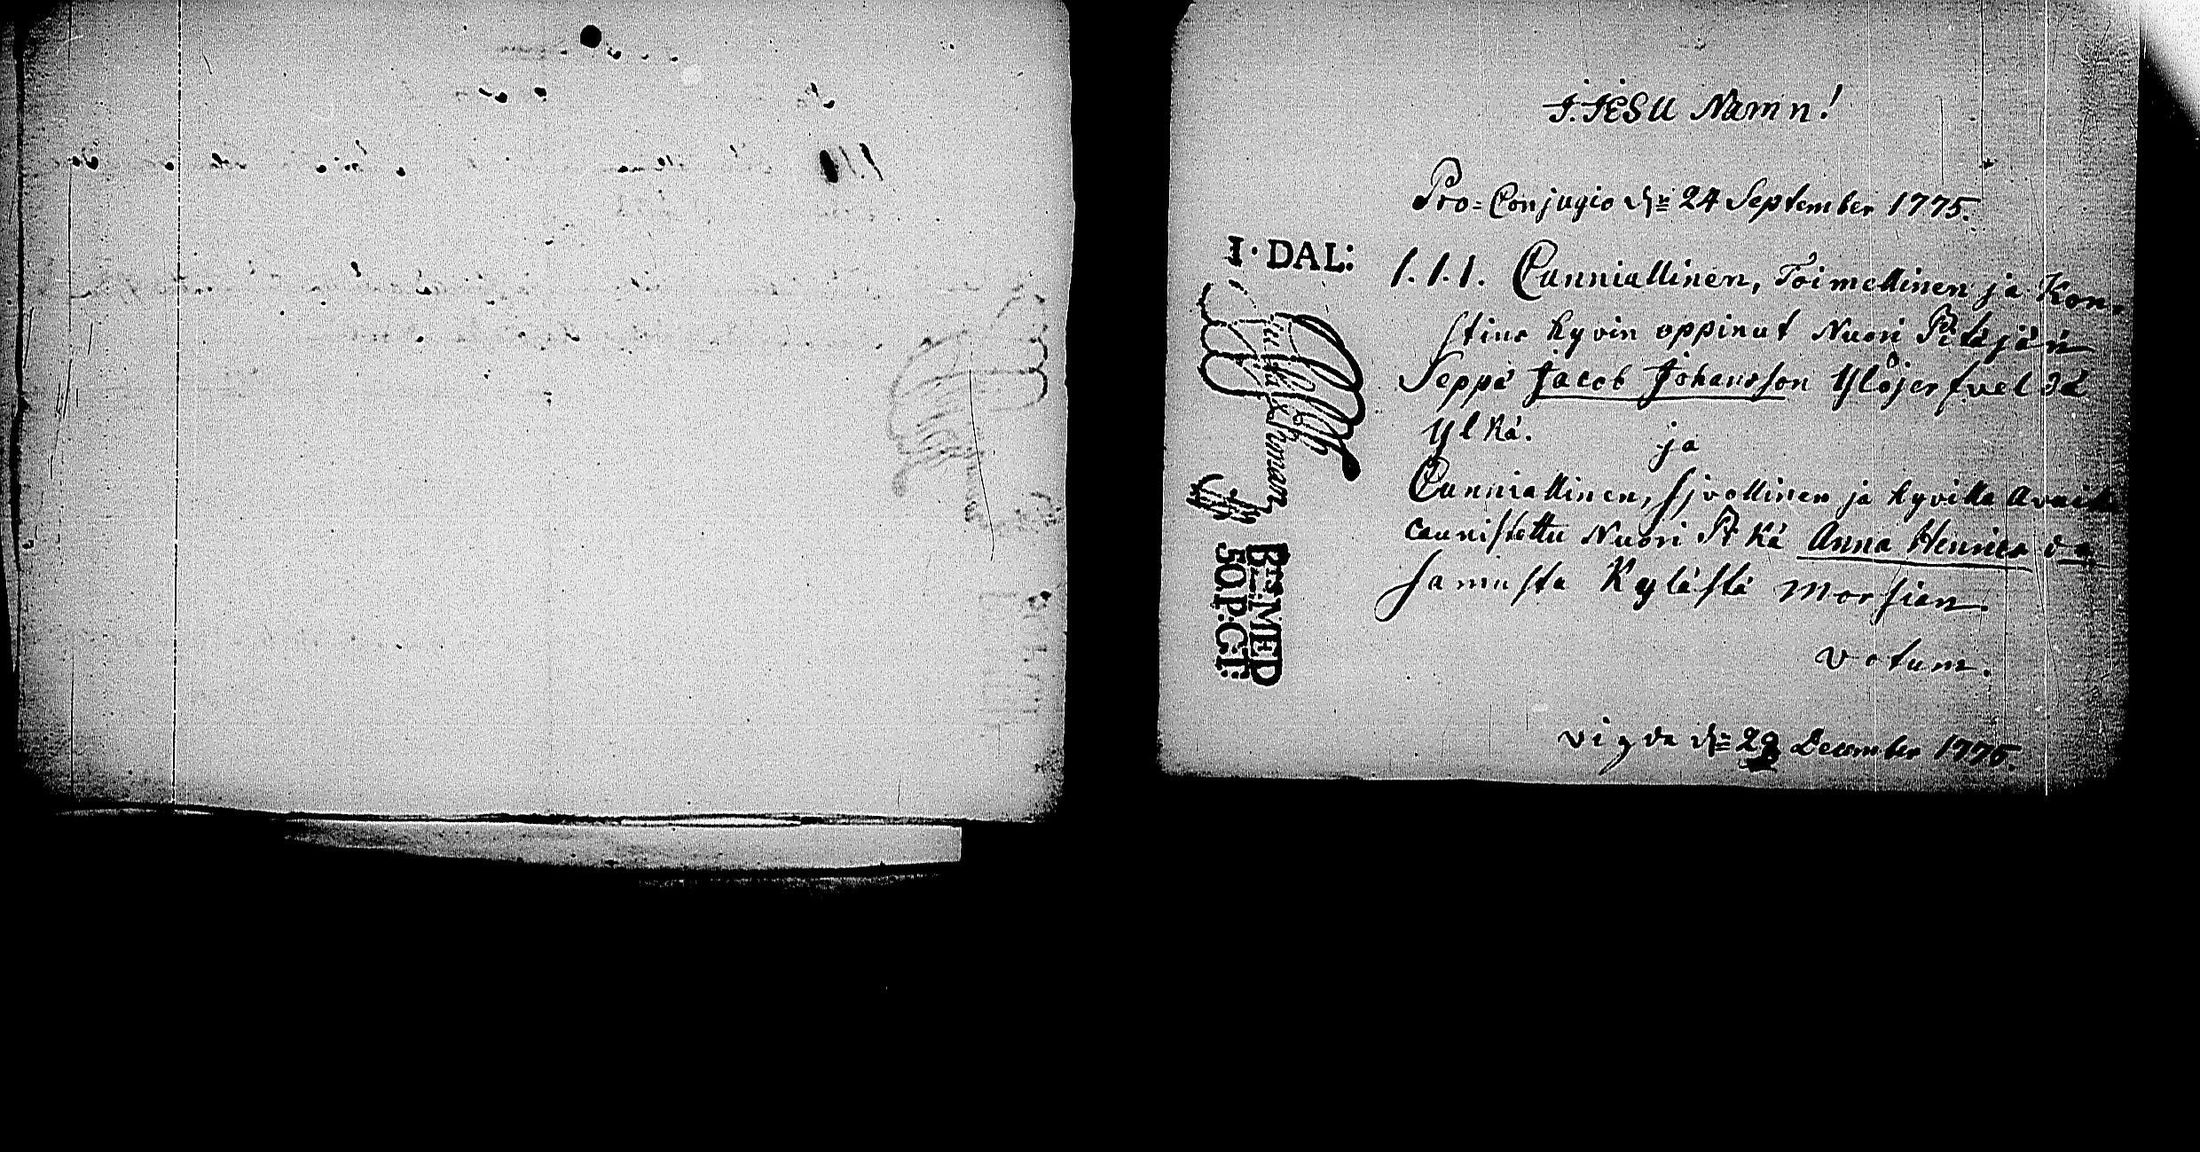 I. JESU Namn!
Pro=Conjugio dn 24 September 1775.
I·DAL:
1.1.1. Cunniallinen, Toimellinen ja Kon-
stins hyvin oppinut Nuori Pitäjän
Seppä Jacob Johansson Ylöjerfveldä
Ylkä.
ja
Cunniallinen, sjvollinen ja hyvillä
caunistettu Nuori Anna
samasta Kylästä Morsian.
Votum.
vigda dn December 1775.
50.P:CT: